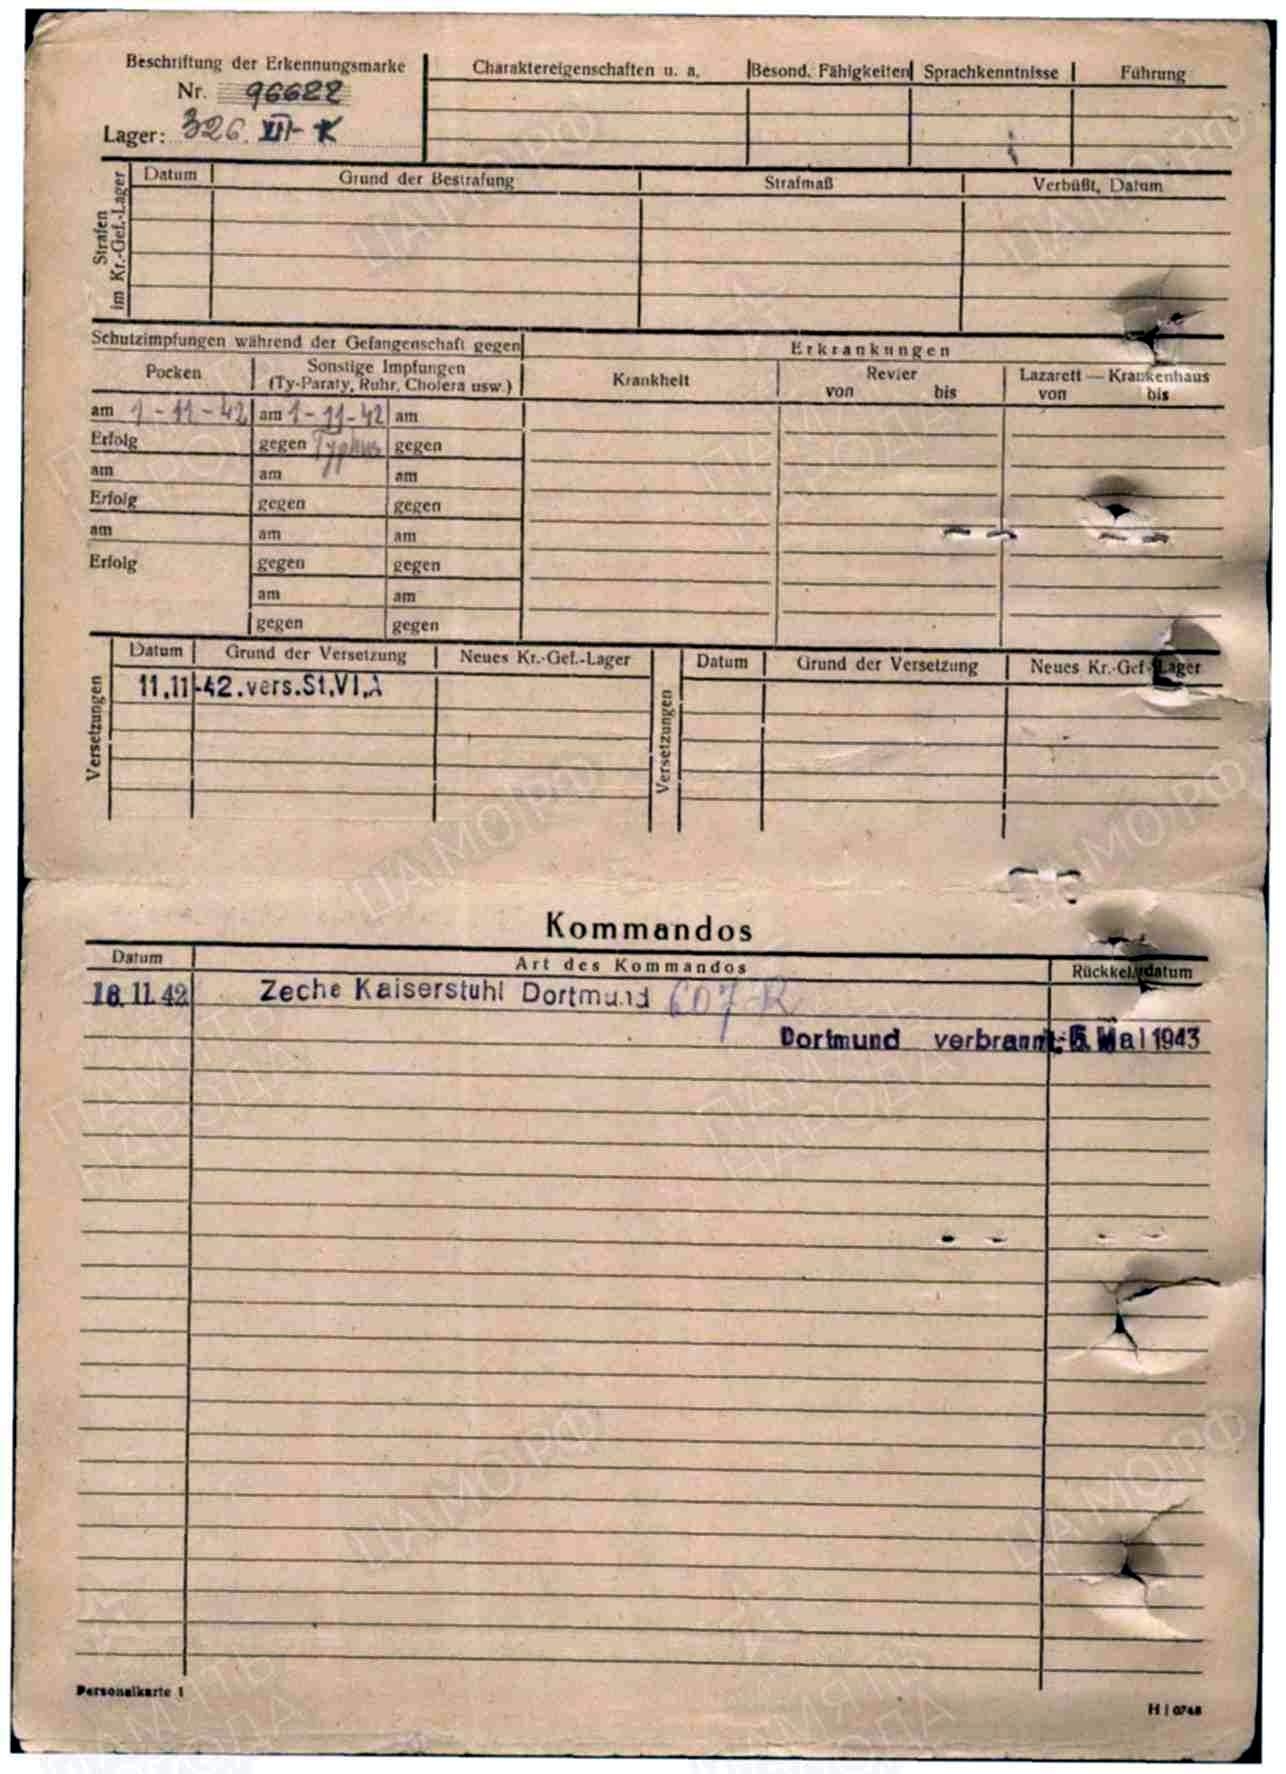 Beschriftung der Erkennungsmarke
Nr. 96622
Lager: 326. VI-K
Charaktereigenschaften u. a. Besond. Fähigkeiten Sprachkenntnisse Führung
Strafen im Kr.-Gef.-Lager
Datum Grund der Bestrafung Strafmaß Verbüßt, Datum
Schutzimpfungen während der Gefangenschaft gegen
Erkrankungen
Pocken Sonstige Impfungen (Ty-Paraty, Ruhr, Cholera usw.)
Krankheit Revier von bis Lazarett — Krankenhaus von bis
am 1-11-42 am 1-11-42 am
Erfolg gegen Typhus gegen
am am am
Erfolg gegen gegen
am am am
Erfolg gegen gegen
am am
gegen gegen
Versetzungen
Datum Grund der Versetzung Neues Kr.-Gef.-Lager
11.11-42.vers.St.VI.A
Versetzungen
Datum Grund der Versetzung Neues Kr.-Gef.-Lager
Kommandos
Datum Art des Kommandos Rückkehrdatum
16.11.42 Zeche Kaiserstuhl Dortmund 607 R
Dortmund verbrannt: Mai 1943
Personalkarte I
H | 0748
ЦАМО РФ
ПАМЯТЬ НАРОДА